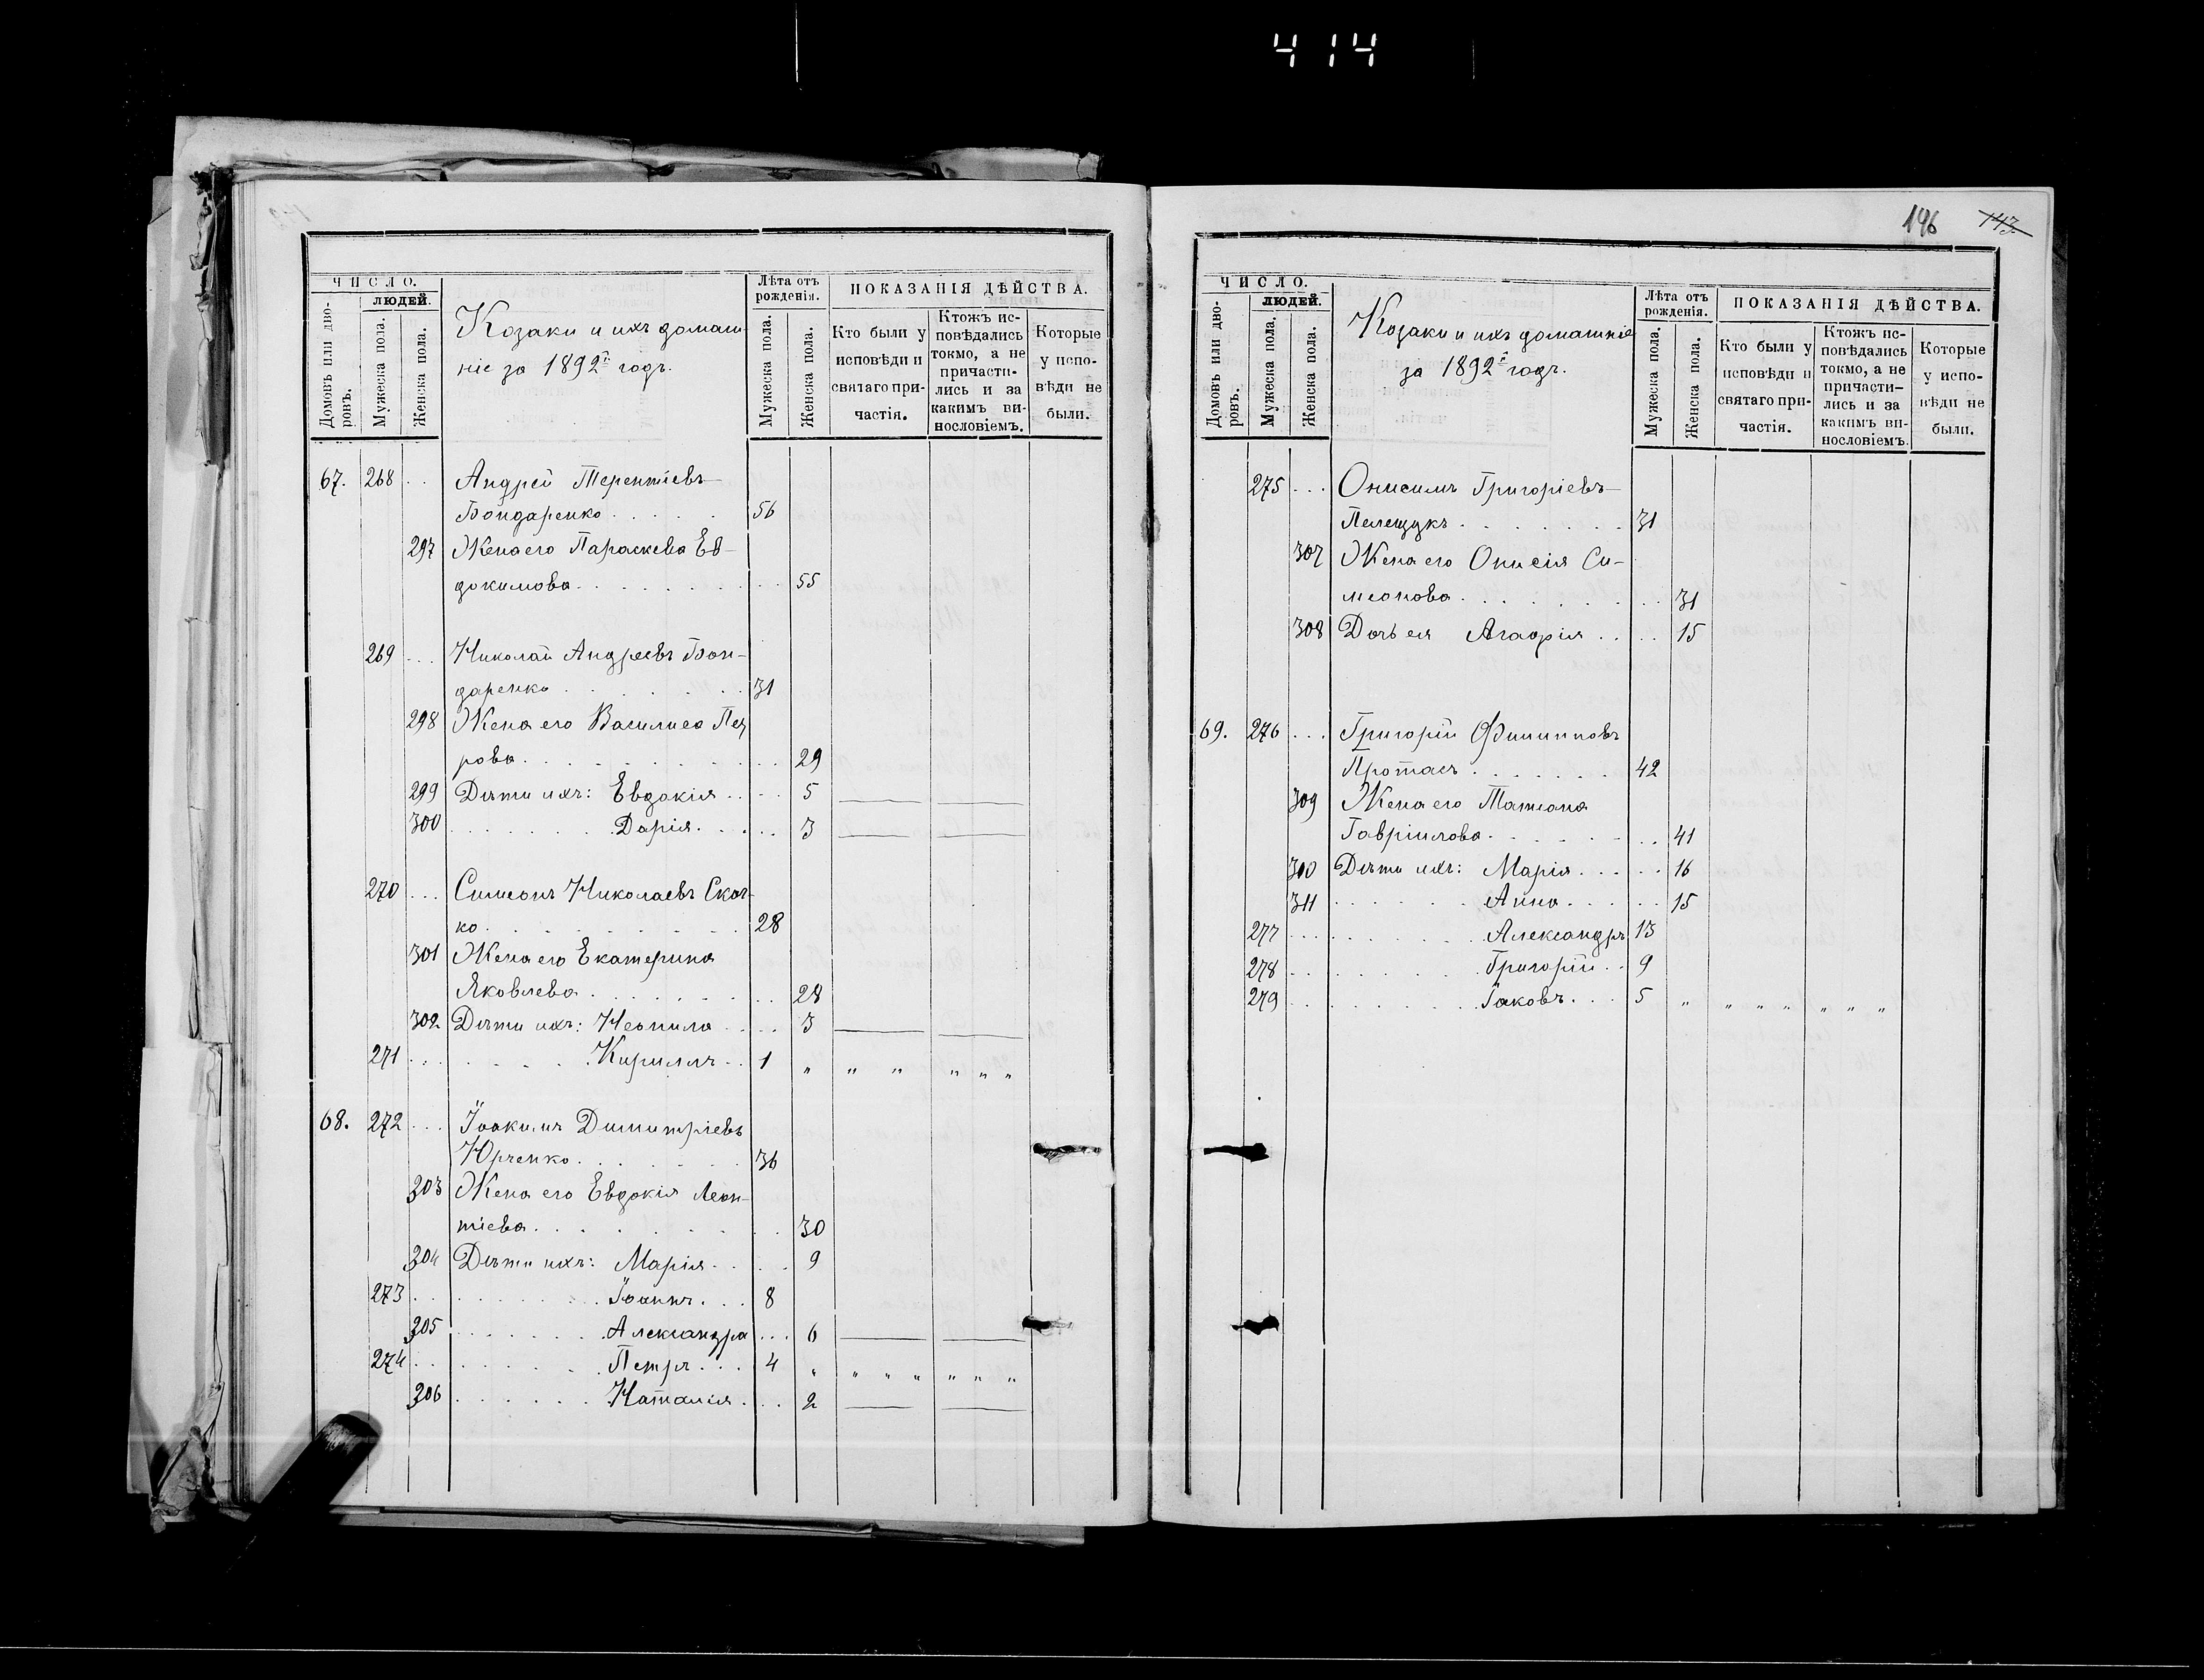 414
ЧИСЛО.
ЛЮДЕЙ.
Домовъ или дворовъ.
Мужеска пола.
Женска пола.
Козаки и ихъ домаш-
ніе за 1892й годъ.
Лѣта отъ рожденія.
Мужеска пола.
Женска пола.
ПОКАЗАНІЯ ДѢЙСТВА.
Кто были у исповѣди и святаго причастія.
Ктожъ исповѣдались токмо, а не причастились и за какимъ винословіемъ.
Которые у исповѣди не были.
67. 268 . . Андрей Терентіевъ
Бондаренко . . . . . 56
297 Жена его Параскева Ев-
докимова . . . . . . . . . 55
269 . . . Николай Андреевъ Бон-
даренко . . . . . . . 31
298 Жена его Василиса Пет
рова . . . . . . . . . . . 29
299 Дѣти ихъ: Евдокія . . . . 5
300 . . . . . . . Дарія . . . . . 3
270 . . . Симеонъ Николаевъ Скоч-
ко . . . . . . . . . . 28
301 Жена его Екатерина
Яковлева . . . . . . . . . 28
302 Дѣти ихъ: Неонила . . . . 3
271 . . . . . . . Кириллъ . . 1 „ „ „ „ „ „
68. 272 . . . Іоакимъ Димитріевъ
Юрченко . . . . . . . 36
303 Жена его Евдокія Леон-
тіева . . . . . . . . . 30
304 Дѣти ихъ: Марія . . . . 9
273 . . . . . . . . . Іоаннъ . . . 8
305 . . . . . . . Александра . . . 6
274 . . . . . . . . Петръ . . . 4 „ „ „ „ „ „ „
306 . . . . . . Наталія . . . 2
196 143
ЧИСЛО.
ЛЮДЕЙ.
Домовъ или дворовъ.
Мужеска пола.
Женска пола.
Козаки и ихъ домашніе
за 1892й годъ.
Лѣта отъ рожденія.
Мужеска пола.
Женска пола.
ПОКАЗАНІЯ ДѢЙСТВА.
Кто были у исповѣди и святаго причастія.
Ктожъ исповѣдались токмо, а не причастились и за какимъ винословіемъ.
Которые у исповѣди не были.
275 . . . Онисимъ Григоріевъ
Пелещукъ . . . . . . . 31
307 Жена его Онисія Си-
меонова . . . . . . . . . 31
308 Дочь ея Агафія . . . . 15
69. 276 . . . Григорій Филипповъ
Протасъ . . . . . . . 42
309 Жена его Татіана
Гавріилова . . . . . . . . 41
300 Дѣти ихъ: Марія . . . . . 16
311 . . . . . . Анна . . . . . 15
277 . . . . . . . . . . Александръ 13
278 . . . . . . . . . Григорій . . 9
279 . . . . . . . . . Іаковъ . . . 5 „ „ „ „ „ „ „